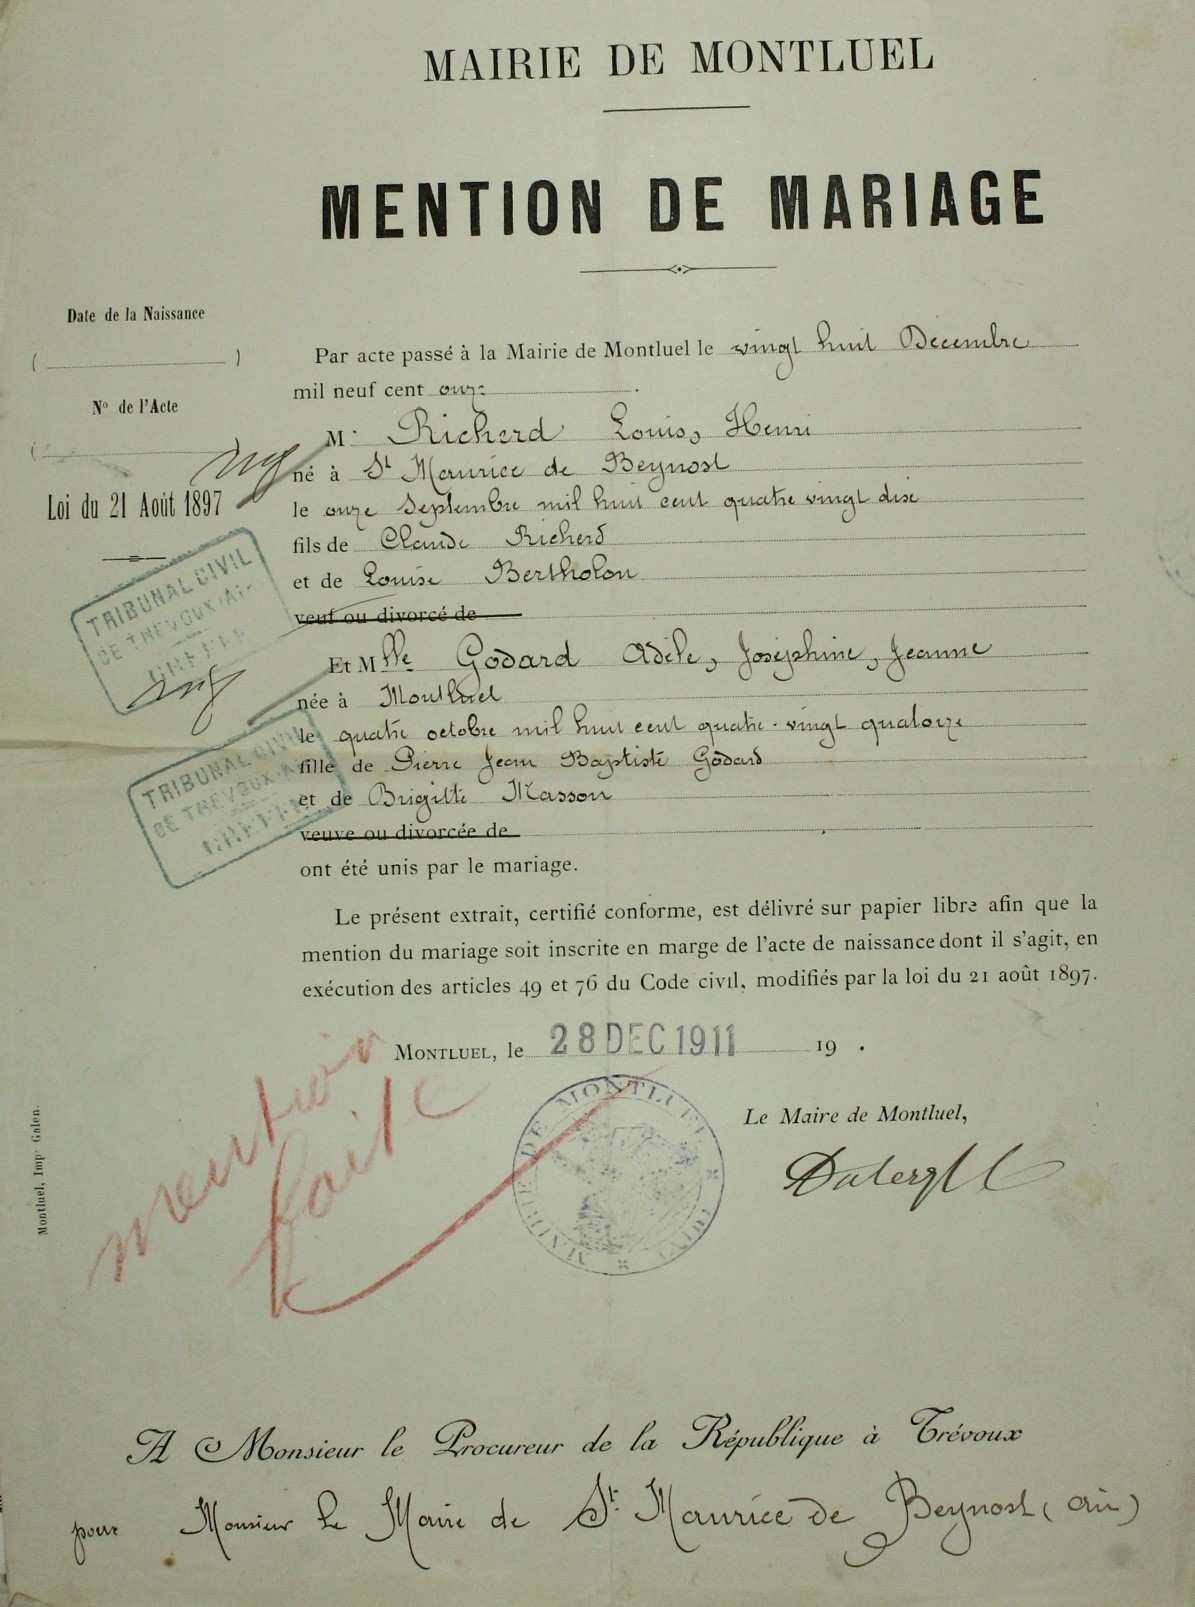 MAIRIE DE MONTLUEL
MENTION DE MARIAGE
Date de la Naissance
( )
N° de l'Acte
(
Loi du 21 Août 1897
TRIBUNAL CIVIL
DE TREVOUX-AIN
GREFFE
TRIBUNAL CIVIL
DE TREVOUX-AIN
GREFFE
Par acte passé à la Mairie de Montluel le vingt huit Décembre
mil neuf cent onze .
M. Richerd Louis, Henri
né à St Maurice de Beynost
le onze septembre mil huit cent quatre vingt dix
fils de Claude Richerd
et de Louise Bertholon
veuf ou divorcé de
Et Mlle Godard Adèle, Joséphine, Jeanne
née à Montluel
le quatre octobre mil huit cent quatre-vingt quatorze
fille de Pierre Jean Baptiste Godard
et de Brigitte Masson
veuve ou divorcée de
ont été unis par le mariage.
Le présent extrait, certifié conforme, est délivré sur papier libre afin que la
mention du mariage soit inscrite en marge de l'acte de naissance dont il s'agit, en
exécution des articles 49 et 76 du Code civil, modifiés par la loi du 21 août 1897.
MONTLUEL, le 28 DEC 1911 19 .
mention
faite
MAIRIE DE MONTLUEL (AIN)
Le Maire de Montluel,
Montluel, Imp. Galen.
A Monsieur le Procureur de la République à Trévoux
pour Monsieur le Maire de St. Maurice de Beynost (Ain)